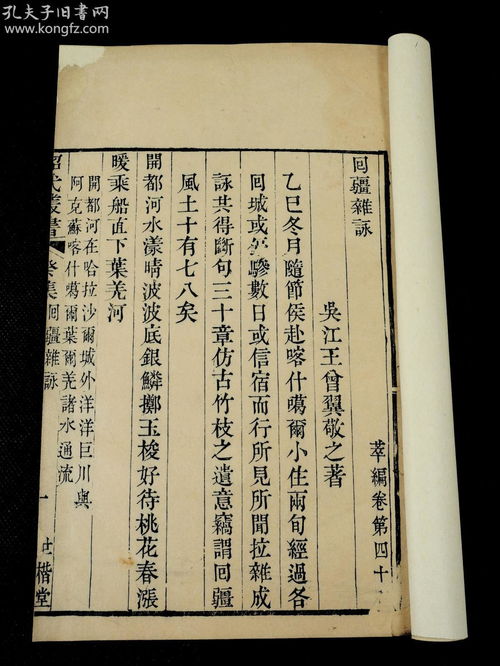 孔夫子旧书网
www.kongfz.com
回疆雜詠
萃編卷第四十
吳江王曾翼敬之著
乙巳冬月隨節侯赴喀什噶爾小住兩旬經過各
回城或停驂數日或信宿而行所見所聞拉雜成
詠共得斷句三十章仿古竹枝之遺意竊謂回疆
風土十有七八矣
開都河水漾晴波波底銀鱗擲玉梭好待桃花春漲
暖乘船直下葉羌河
開都河在哈拉沙爾城外洋洋巨川與
阿克蘇喀什噶爾葉爾羌諸水通流
昭代叢書 癸集回疆雜詠 一 世楷堂